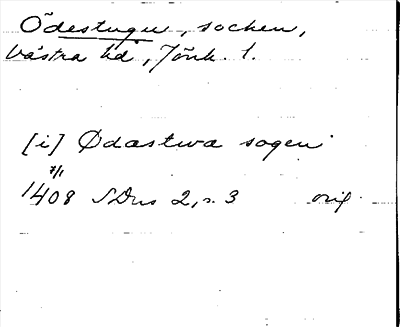 Ödestugu, socken,
Västra hd, Jönk. l.
[i] Ødastwa sogen
7/1
1408 SDns 2, s. 3 orig.